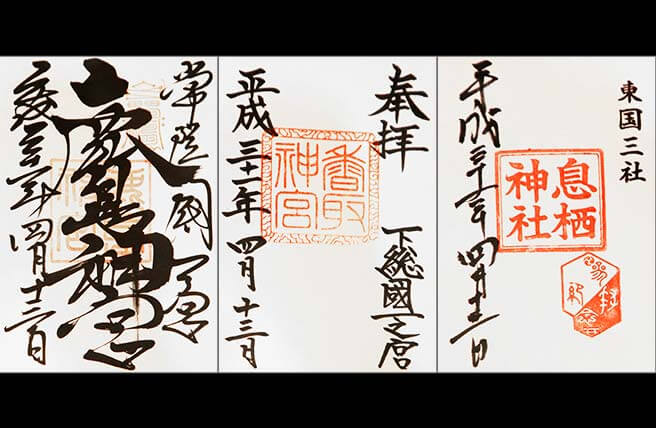 常陸國一之宮
鹿島神宮
四月十三日
奉拝
下総國之宮
香取神宮
平成三十一年四月十三日
東国三社
息栖神社
平成三十一年四月十三日